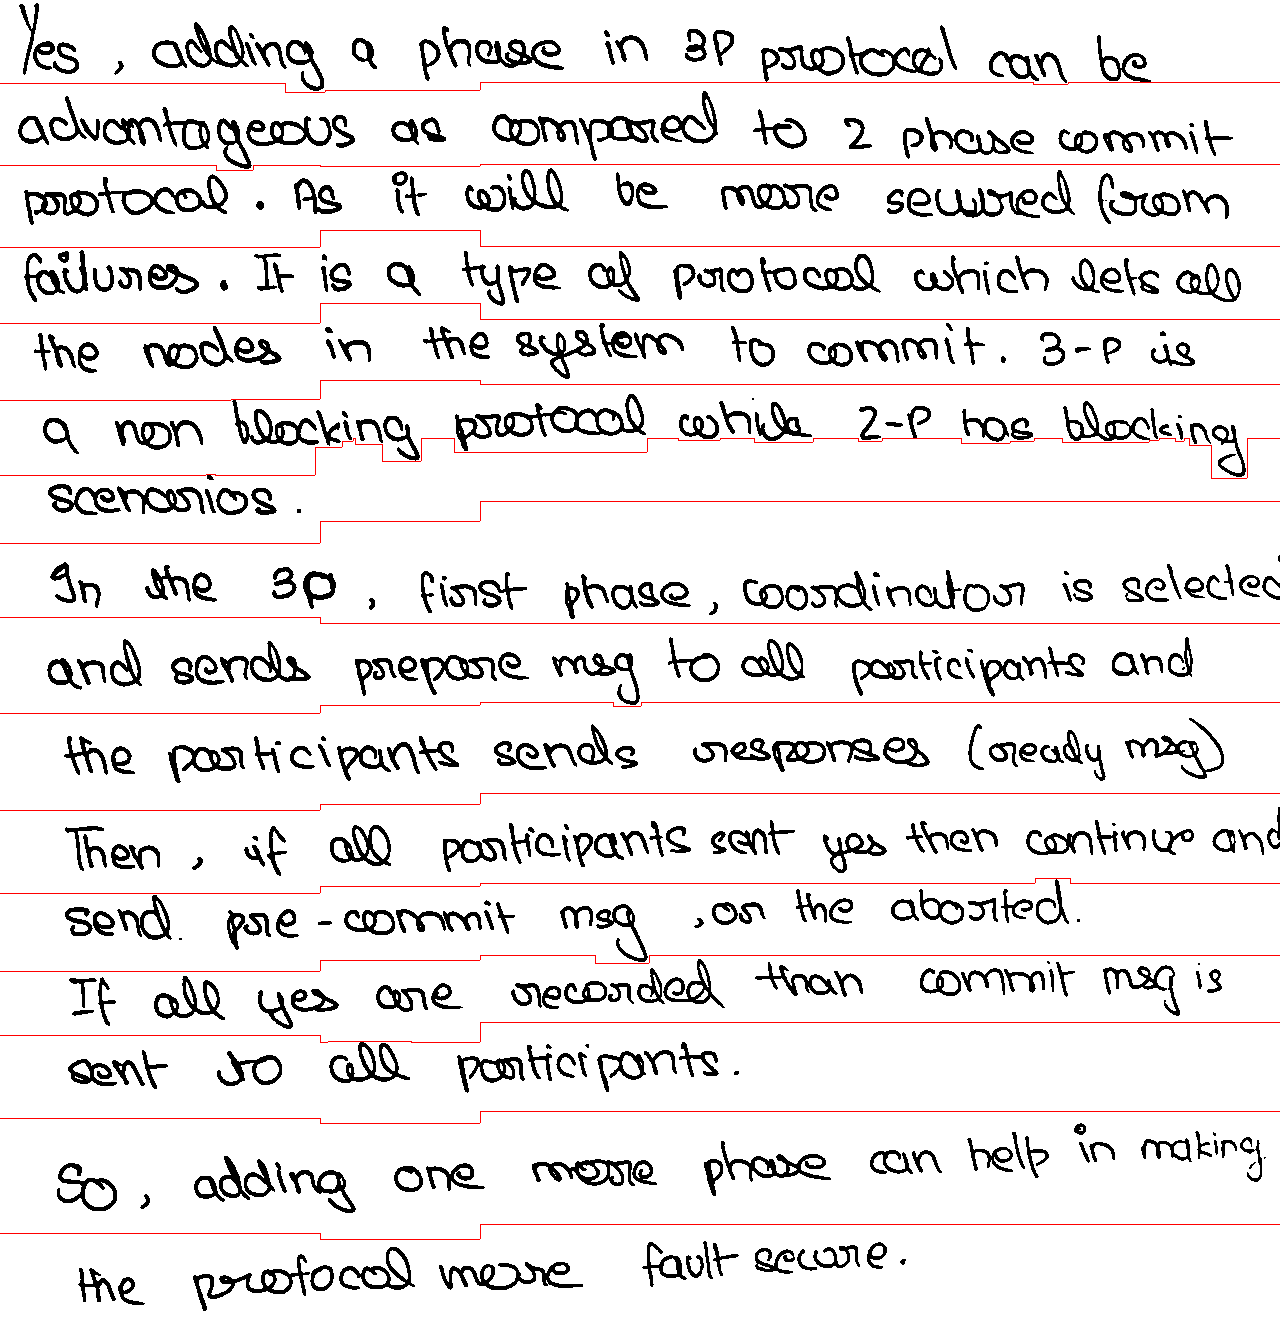 Yes, adding a phase in 3P protocol can be
advantageous as compared to 2 phase commit
protocol. As it will be more secured from
failures. It is a type of protocol which lets all
the nodes in the system to commit. 3-P is
a non blocking protocol while 2-P has blocking
scenarios.
In the 3P, first phase, coordinator is selected
and sends prepare msg to all participants and
the participants sends responses (ready msg)
Then, if all participants sent yes then continue and
send. pre-commit msg, or the aborted.
If all yes are recorded than commit msg is
sent to all participants.
So, adding one more phase can help in making
the protocol more fault secure.